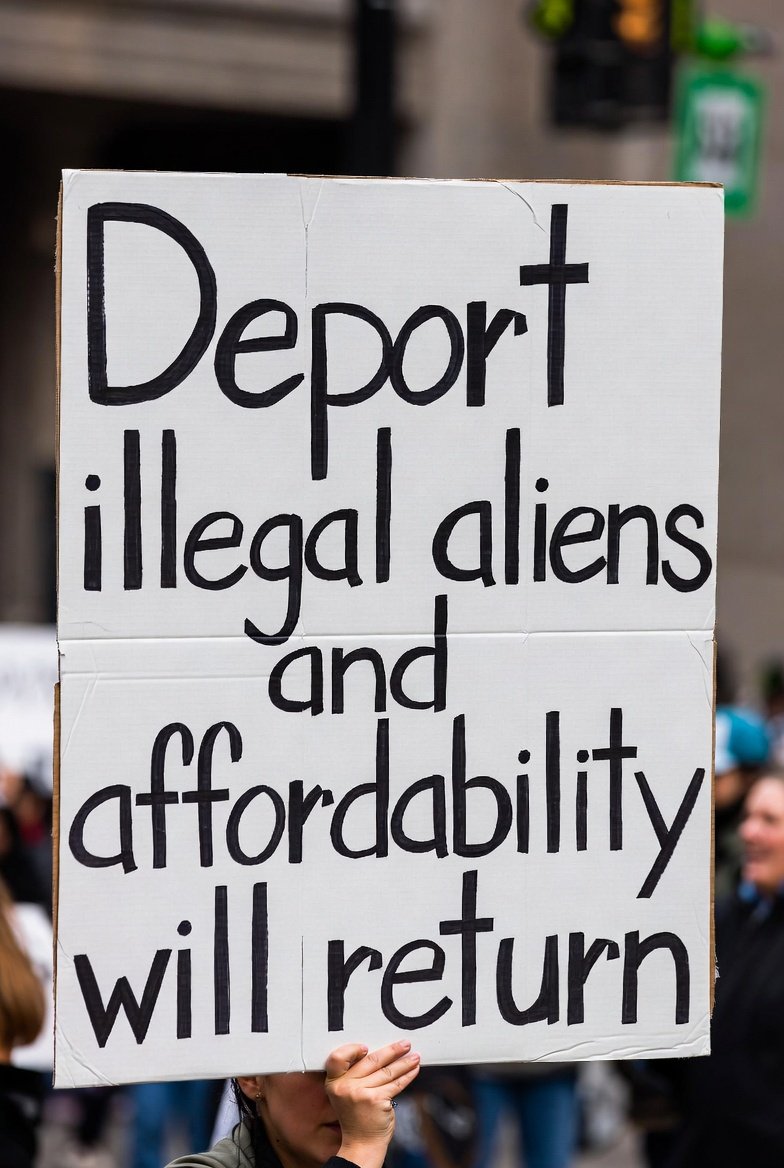 Deport
illegal aliens
and
affordability
will return